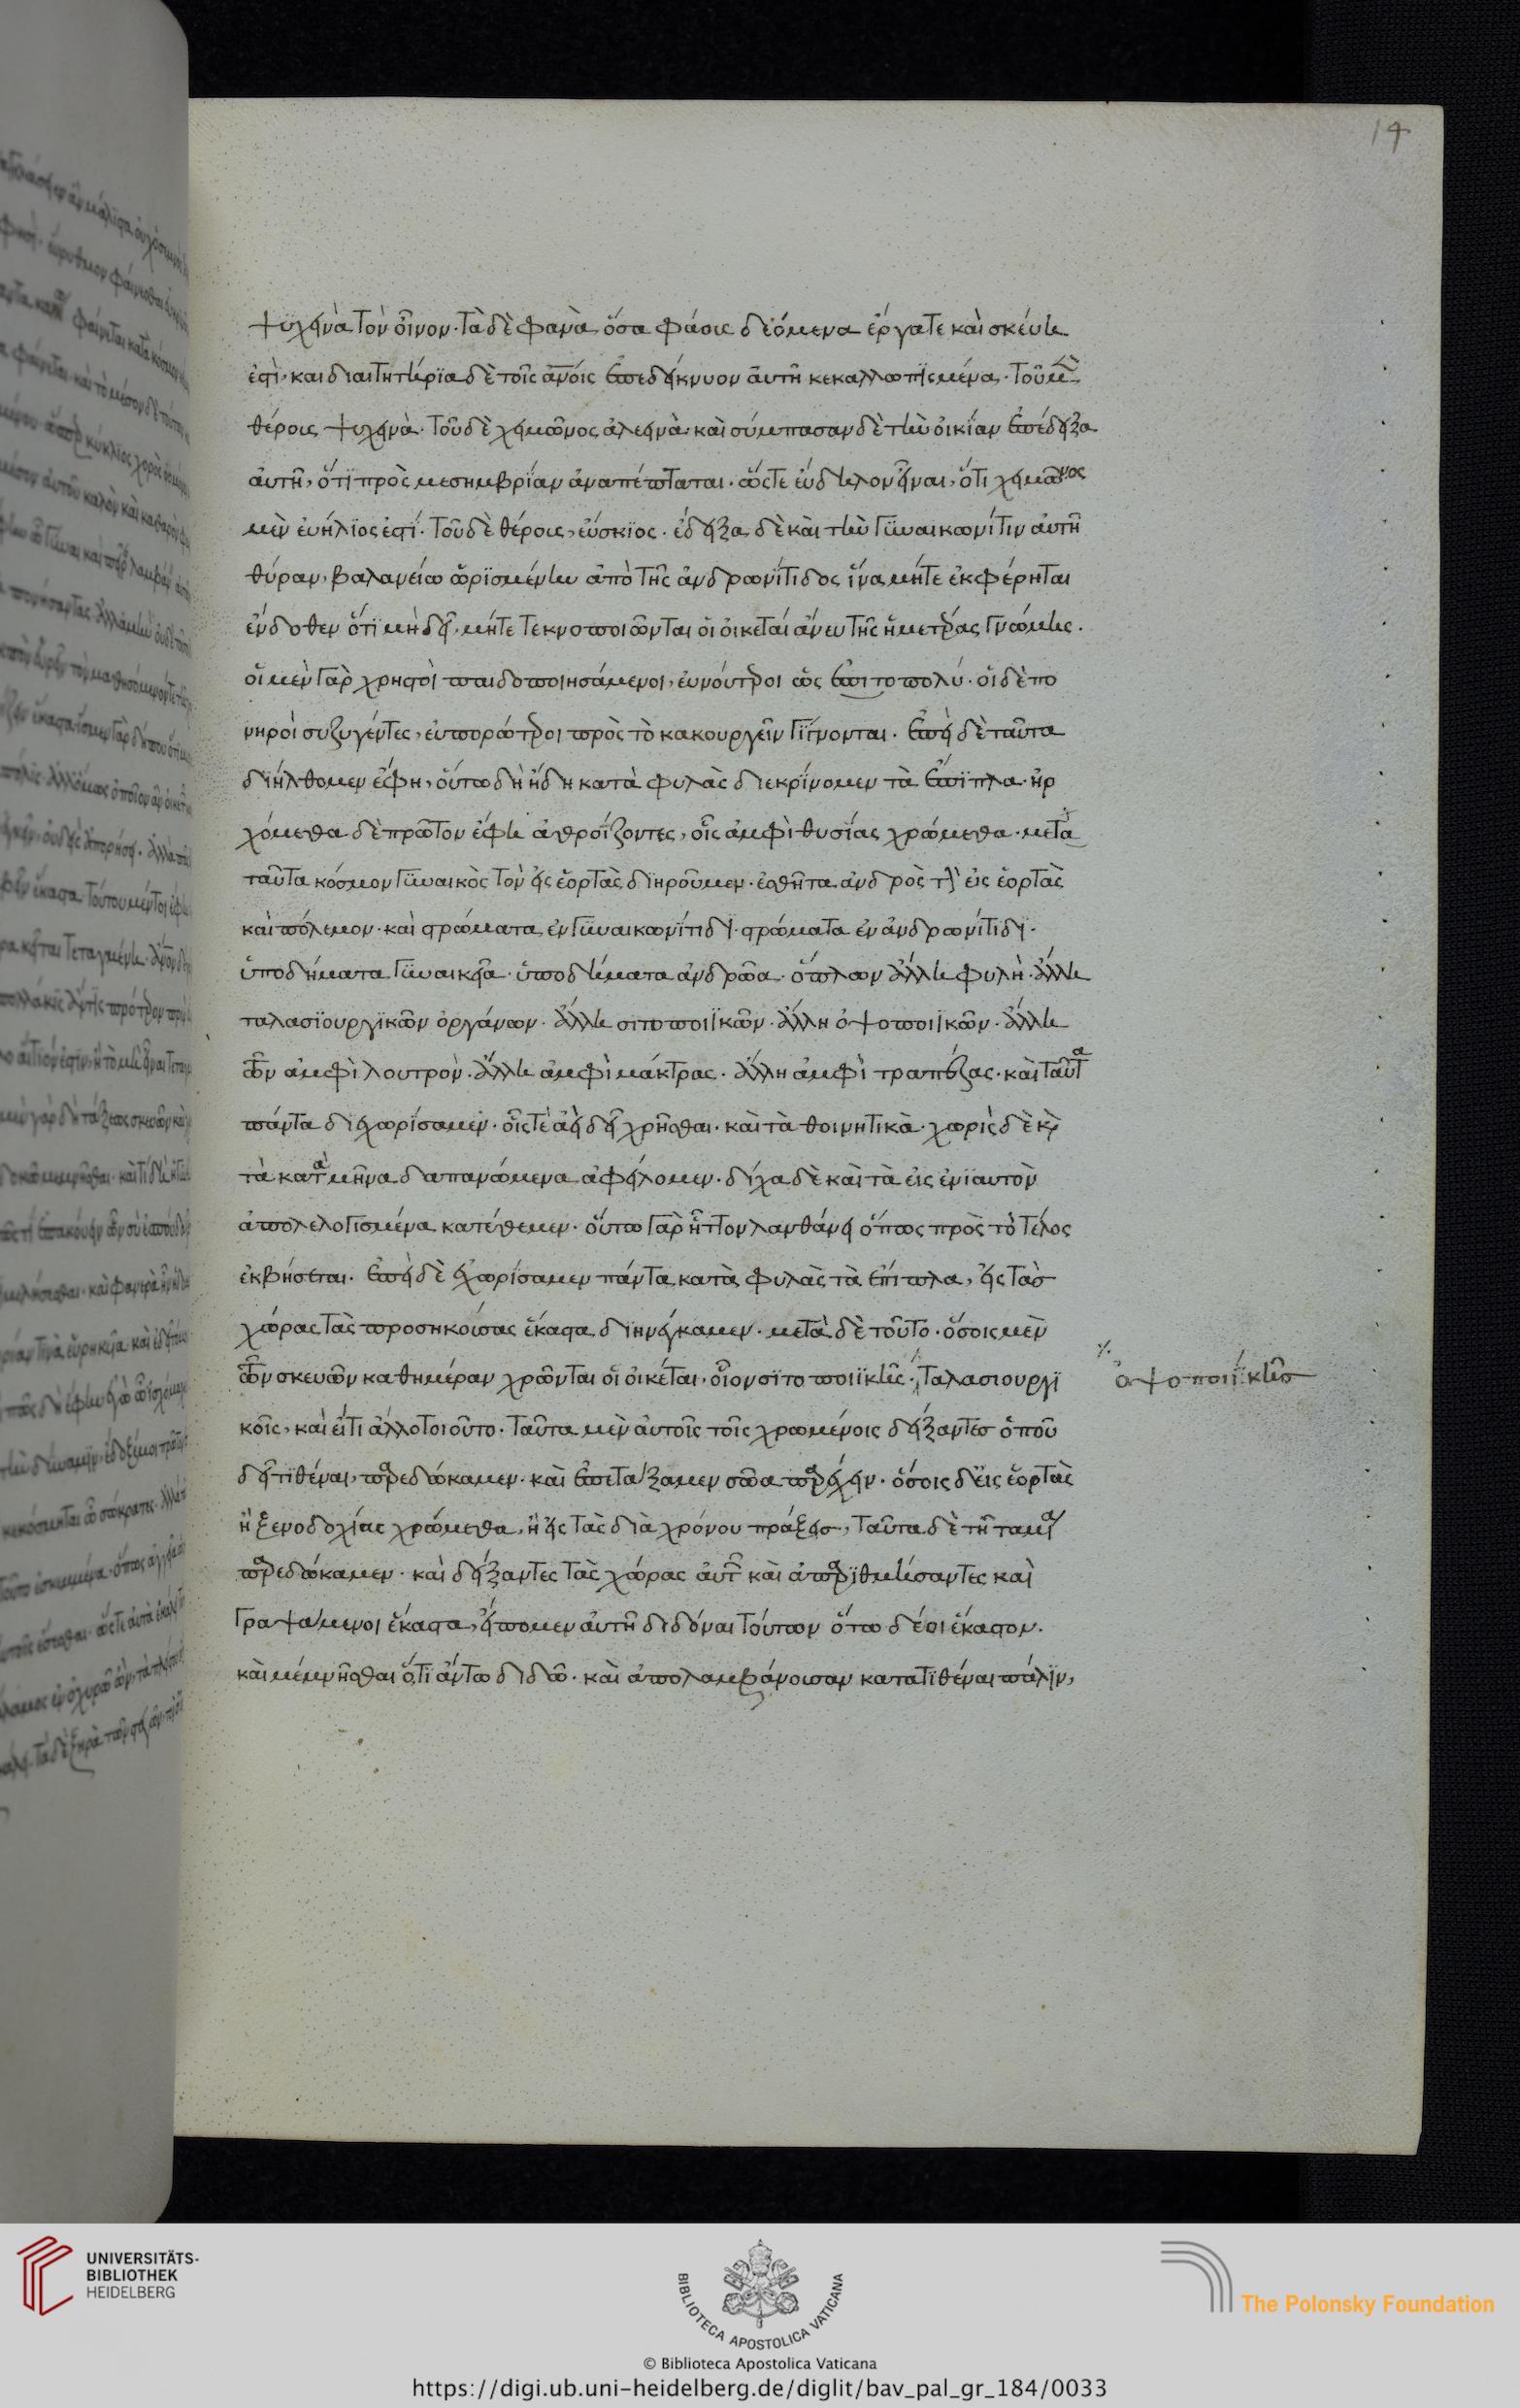 14
ψυχεινὰ τὸν οἶνον· τὰ δὲ φανὰ ὅσα φάους δεόμενα ἔργα τε καὶ σκεύη
ἐστὶ· και διαιτητήρϊα δὲ τοῖς ἀν̅οις ἐπεδείκνυον αὐτῆ κεκαλλωπϊσμένα· τοῦ μὲν
θέρους ψυχεινὰ· τοῦ δὲ χειμῶνος ἀλεεινὰ· καὶ σύμπασαν δὲ τὴν οἰκίαν ἐπέδειξα
αὐτῆ, ὅτϊ πρὸς μεσημβρίαν ἀναπέπταται· ὥστε εὔδηλον εἶναι, ὅτι χειμῶνος
μὲν εὐήλϊος ἐστί· τοῦ δὲ θέρους, εὔσκϊος· ἔδειξα δὲ καὶ τὴν γϋναικωνίτιν αὐτῆ
θύραν, βαλανείω ὡρϊσμένην ἀπὸ τῆς ἀνδρωνίτιδος ἵνα μήτε ἐκφέρηται
ἔνδοθεν ὅτϊ μὴ δεῖ, μήτε τεκνοποιῶνται οἱ οἰκεταί ἄνευ τῆς ἡμετέρας γνώμης.
οἱ μὲν γὰρ χρηστοὶ παιδοποιησάμενοι, εὐνούτεροι ὡς ἐπιτοπολύ· οἱ δὲ πο
νηροὶ συζυγέντες, εὐπορώτεροι πρὸς τὸ κακουργεῖν γίγνονται. ἐπεὶ δὲ ταῦτα
δϊήλθομεν ἔφη, οὕτω δὴ ἤδη κατὰ φυλὰς διεκρίνομεν τὰ ἔπϊπλα· ἠρ
χόμεθα δὲ πρῶτον ἔφη ἀθροίζοντες, οἷς ἀμφὶ θυσίας χρώμεθα· μετὰ
ταῦτα κόσμον γϋναικὸς τὸν εἰς ἑορτὰς δϊηροῦμεν· ἐσθῆτα ἀνδρὸς τὴν εἰς ἑορτὰς
καὶ πόλεμον· καὶ στρώματα ἐν γϋναικωνίτιδϊ· στρώματα ἐν ἀνδρωνίτιδϊ·
ὑποδήματα γϋναικεῖα· ὑποδήματα ἀνδρῶα· ὅπλων ἄλλη φυλὴ· ἄλλη
ταλασϊουργϊκῶν ὀργάνων· ἄλλη σιτοποιϊκῶν· ἄλλη ὀψοποιϊκῶν· ἄλλη
τῶν ἀμφὶ λουτρὸν· ἄλλη ἀμφὶ μάκτρας· ἄλλη ἀμφὶ τραπέζας· καὶ ταῦτα
πάντα διεχωρίσαμεν· οἷς τὲ ἀεὶ δεῖ χρῆσθαι· καὶ τὰ θοινητικὰ· χωρὶς δὲ κὶ
τὰ κατὰ μῆνα δαπανώμενα ἀφείλομεν· δίχα δὲ καὶ τὰ εἰς ἐνϊαυτὸν
ἀπολελογισμένα κατέθεμεν· οὕτω γὰρ ἧττον λανθάνει ὅπως πρὸς τὸ τέλος
ἐκβήσεται. ἐπεὶ δὲ ἐχωρίσαμεν πάντα κατὰ φυλὰς τὰ ἔπίπλα, εἰς τὰσ
χώρας τὰς προσηκούσας ἕκαστα δϊηνέγκαμεν· μετὰ δὲ τοῦτο· ὅσοις μὲν
τῶν σκευῶν καθημέραν χρῶνται οἱ οἰκέται, οἷον σϊτοποιϊκῆς· ταλασιουργϊ
ὀψοποιϊκῆσ
κοῖς, καὶ εἴτι ἀλλοτοιοῦτο· ταῦτα μὲν αὐτοῖς τοῖς χρωμένοις δείξαντεσ ὅπου
δεῖ τϊθέναι, παρεδώκαμεν· καὶ ἐπετάξαμεν σῶα παρέχειν· ὅσοις δ'εἰς ἑορτὰς
ἢ ξενοδοχίας χρώμεθα, ἢ εἰς τὰς διὰ χρόνου πράξεισ, ταῦτα δὲ τῆ ταμία
παρεδώκαμεν· καὶ δείξαντες τὰς χώρας αὐτῶν καὶ ἀπαριθμήσαντες καὶ
γραψάμενοι ἕκαστα, εἴπομεν αὐτῆ διδόναι τούτων ὅτω δέοι ἕκαστον.
καὶ μέμνῆσθαι ὅ,τι ἄντω διδῶ· καὶ ἀπολαμβάνουσαν κατατϊθέναι πάλϊν,
UNIVERSITÄTS-
BIBLIOTHEK
HEIDELBERG
BIBLIOTECA APOSTOLICA VATICANA
The Polonsky Foundation
© Biblioteca Apostolica Vaticana
https://digi.ub.uni-heidelberg.de/diglit/bav_pal_gr_184/0033